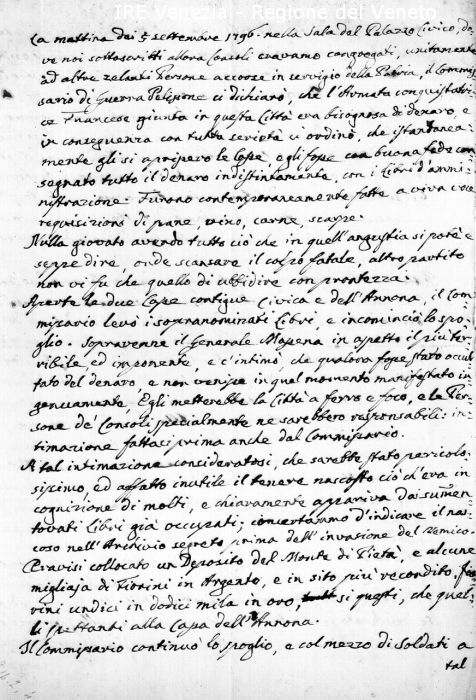 IRE Venezia - Regione del Veneto
La mattina dei 5 settembre 1796. nella Sala del Palazzo Civico, do-
ve noi sottoscritti allora Consoli eravamo congregati, unitamente
ad altre zelanti Persone accorse in servigio della Patria, il Commis-
sario di Guerra Pelissone ci dichiarò, che l'Armata conquistatri-
ce Francese giunta in questa Città era bisognosa di denaro, e
in conseguenza con tutta serietà ci ordinò, che istantanea-
mente gli si aprissero le Casse, e gli fosse con buona fede con-
segnato tutto il denaro indistintamente, con i Libri d'ammi-
nistrazione. Furono contemporaneamente fatte a viva voce
requisizioni di pane, vino, carne, scarpe.
Nulla giovato avendo tutto ciò che in quell'angustia si potè e
seppe dire, onde scansare il colpo fatale, altro partito
non vi fu che quello di ubbidire con prontezza.
Aperte le due Casse contigue Civica e dell'Annona, il Com-
missario levò i sopranominati Libri, e incominciò lo spo-
glio. Sopravenne il Generale Massena in aspetto il più ter-
ribile, ed imponente, e c'intimò che qualora fosse stato occul-
tato del denaro, e non venisse in quel momento manifestato in-
genuamente, Egli metterebbe la Città a ferro e foco, e le Per-
sone de' Consoli specialmente ne sarebbero responsabili: in-
timazione fattasi prima anche dal Commissario.
A tal intimazione consideratosi, che sarebbe stato pericolo-
sissimo, ed affatto inutile il tenere nascosto ciò ch'era in
cognizione di molti, e chiaramente appariva dai summen-
tovati Libri già occupati; concertammo d'indicare il nas-
coso nell'Archivio segreto prima dell'invasione del nemico.
Eravisi collocato un Deposito del Monte di Pietà, e alcune
migliaja di Fiorini in Argento, e in sito più recondito,
rini undici in dodici mila in oro, si questi, che quel-
li spettanti alla Cassa dell'Annona.
Il Commissario continuò lo spoglio, e col mezzo di Soldati a
tal